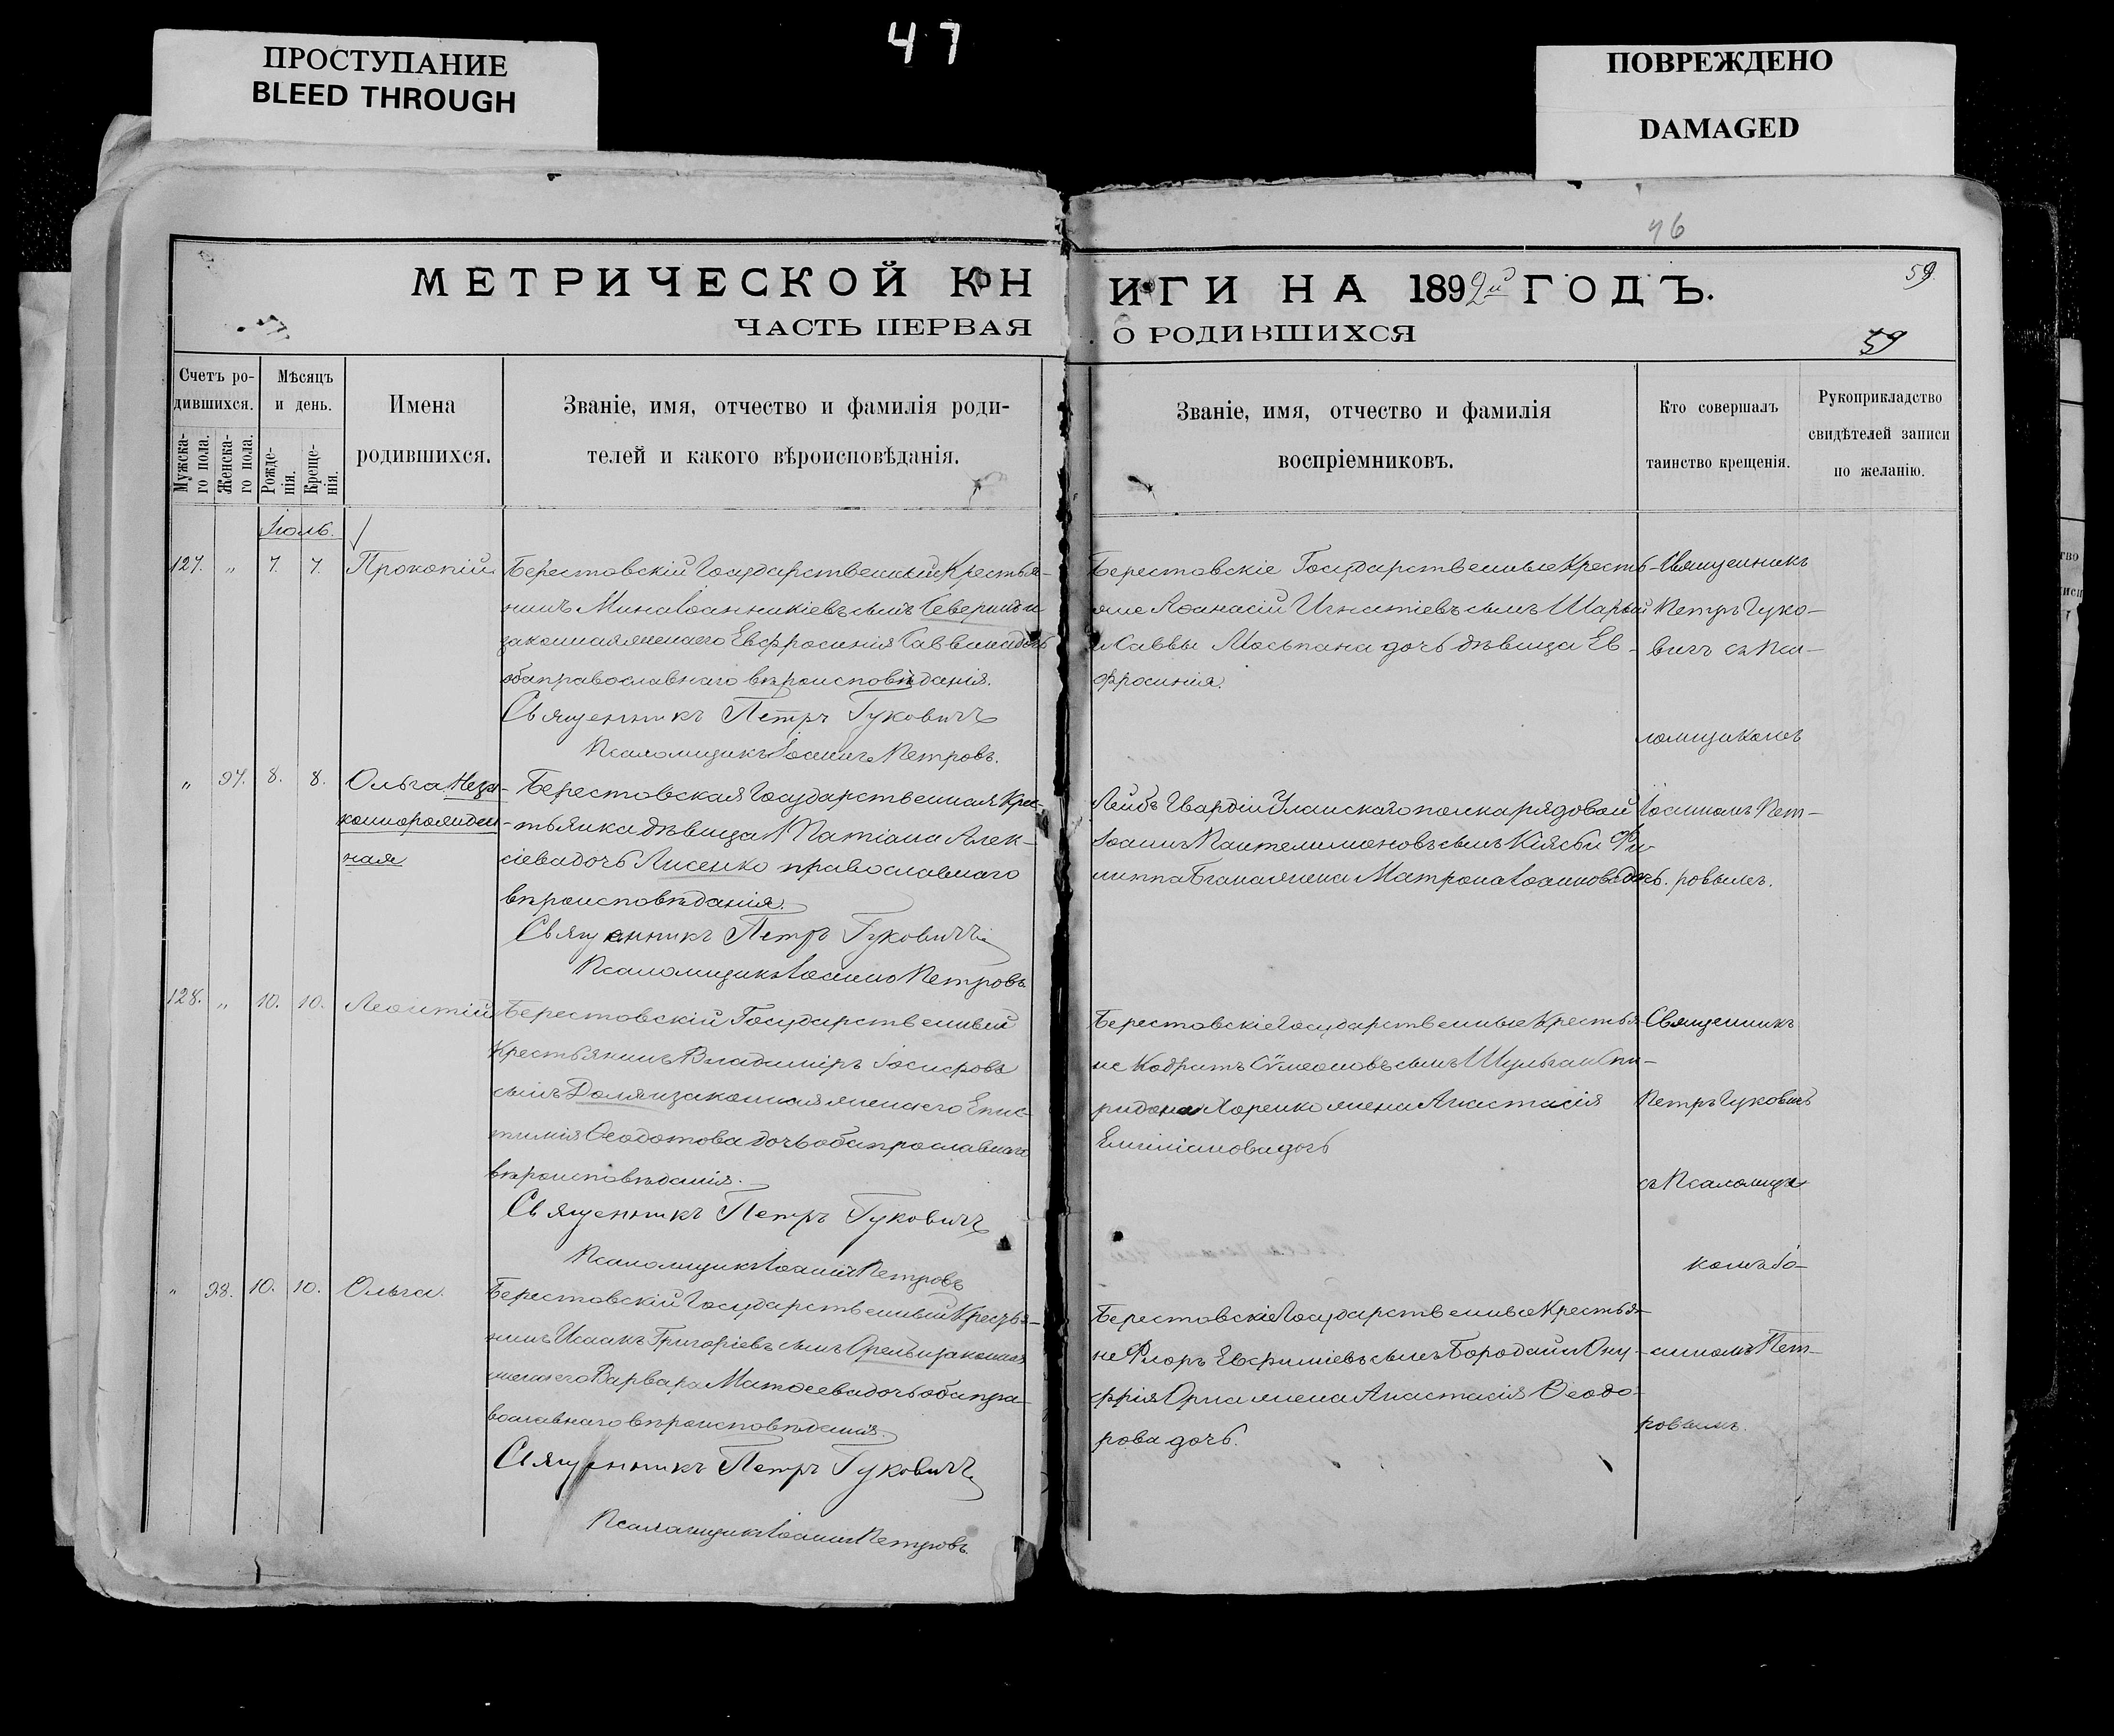 47
ПРОСТУПАНИЕ
BLEED THROUGH
ПОВРЕЖДЕНО
DAMAGED
46
МЕТРИЧЕСКОЙ КНИГИ НА 1892й ГОДЪ.
59.
ЧАСТЬ ПЕРВАЯ О РОДИВШИХСЯ
59
Счетъ ро-
дившихся.
Мужска-
го пола.
Женска-
го пола.
Мѣсяцъ
и день.
Рожде-
нія.
Креще-
нія.
Имена
родившихся.
Званіе, имя, отчество и фамилія роди-
телей и какого вѣроисповѣданія.
Званіе, имя, отчество и фамилія
воспріемниковъ.
Кто совершалъ
таинство крещенія.
Рукоприкладство
свидѣтелей записи
по желанію.
Іюль.
127. " 7. 7. Прокопій
Берестовскій Государственный Крестья-
нинъ Мина Іоанникіевъ сынъ Северинъ и
законная жена его Евфросинія Саввина дочь
оба православнаго вѣроисповѣданія.
Священникъ Петръ Гуковичъ
Псаломщикъ Іоаннъ Петровъ.
Берестовскіе Государственные Кресть-
яне Аѳанасій Игнатіевъ сынъ Шарый
и Саввы Мосьпана дочь дѣвица Ев-
фросинія.
Священникъ
Петръ Гуко-
вичъ съ Пса-
ломщикомъ
" 97. 8. 8. Ольга Неза-
коннорожден-
ная
Берестовская Государственная Крес-
тьянка дѣвица Татіана Алек-
сіева дочь Лисенко православнаго
вѣроисповѣданія.
Священникъ Петръ Гуковичъ
Псаломщикъ Іоаннъ Петровъ
Лейбъ Гвардіи Уланскаго полка рядовой
Іоаннъ Пантелимоновъ сынъ и Фи-
липпа жена Матрона Іоаннова дочь.
Іоанномъ Пет-
ровымъ.
128. " 10. 10. Леонтій
Берестовскій Государственный
Крестьянинъ Владиміръ Іосифовъ
сынъ Доля и законная жена его Епис-
тимія Ѳеодотова дочь оба праславнаго
вѣроисповѣданія.
Священникъ Петръ Гуковичъ
Псаломщикъ Іоаннъ Петровъ
Берестовскіе Государственные Крестья-
не Кодратъ Сѵмеоновъ сынъ Шульга и Спи-
ридона Хоренко жена Анастасія
Емиліанова дочь
Священникъ
Петръ Гуковичъ
съ Псаломщи-
комъ Іо-
" 98. 10. 10. Ольга.
Берестовскій Государственный Крестья-
нинъ Исаакъ Григоріевъ сынъ Орелъ и законная
жена его Варвара Матѳеева дочь оба пра-
вославнаго вѣроисповѣданія.
Священникъ Петръ Гуковичъ
Псаломщикъ Іоаннъ Петровъ.
Берестовскіе Государственные Крестья-
не Флоръ Евфиміевъ сынъ Бородай и Ону-
фрія Орла жена Анастасія Ѳеодо-
рова дочь.
анномъ Пет-
ровымъ.